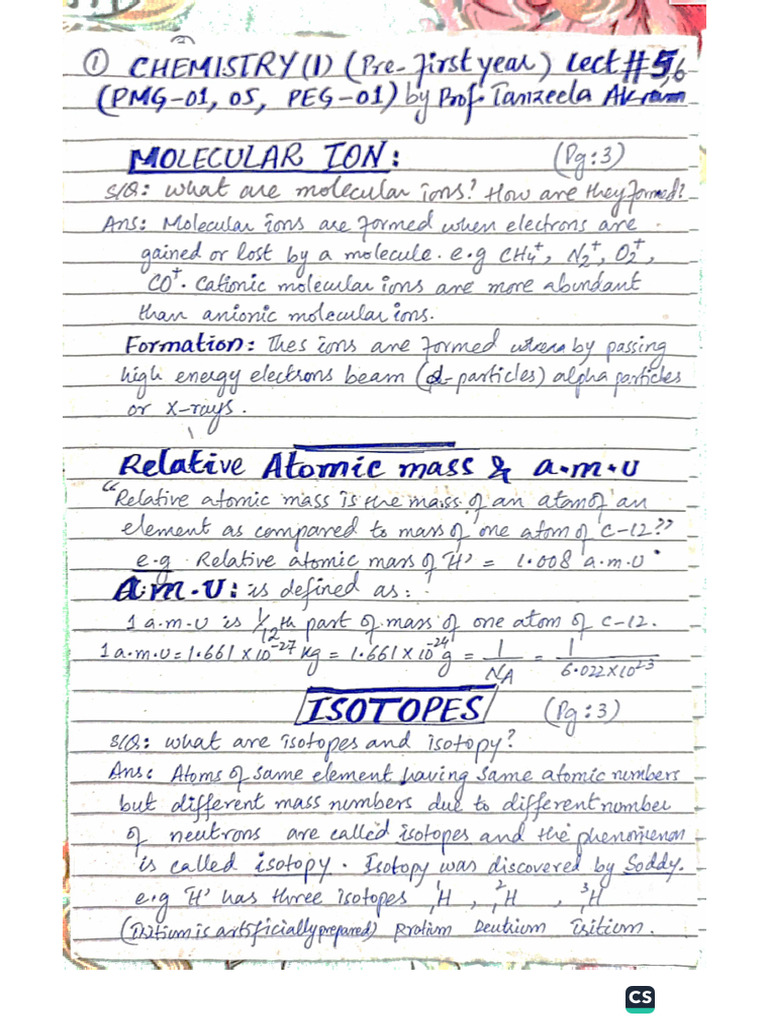 ① CHEMISTRY(1) (Pre-first year) Lect #5,6
(PMG-01, 05, PEG-01) by Prof. Tanzeela Akram
MOLECULAR ION: (Pg:3)
S/Q: what are molecular ions? How are they formed?
Ans: Molecular ions are formed when electrons are
gained or lost by a molecule. e.g CH₄⁺, N₂⁺, O₂⁺,
CO⁺. Cationic molecular ions are more abundant
than anionic molecular ions.
Formation: Thes ions are formed by passing
high energy electrons beam (α-particles) alpha particles
or X-rays.
Relative Atomic mass & a.m.u
"Relative atomic mass is the mass of an atom of an
element as compared to mass of one atom of C-12"
e.g. Relative atomic mass of 'H' = 1.008 a.m.u.
A.m.U: is defined as:
1 a.m.u is 1/12th part of mass of one atom of C-12.
1 a.m.u = 1.661 x 10⁻²⁷ kg = 1.661 x 10⁻²⁴ g = 1/NA = 1/6.022x10²³
ISOTOPES (Pg:3)
S/Q: what are isotopes and isotopy?
Ans: Atoms of same element having same atomic numbers
but different mass numbers due to different number
of neutrons are called isotopes and the phenomenon
is called isotopy. Isotopy was discovered by Soddy.
e.g 'H' has three isotopes ¹₁H, ²₁H, ³₁H
(Tritium is artificially prepared) Protium Deutrium Tritium.
CS